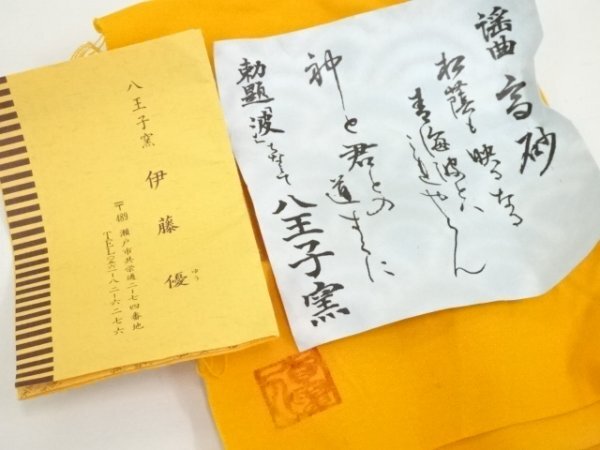 謡曲 高砂
松蔭も映るなる
青海波とハ
これやらん
神と君との
道すくに
勅題「波」ちなみて
八王子窯
八王子窯
伊藤 優
ゆう
〒489 瀬戸市共栄通二ー七四番地
TEL(〇五六一)ー八二ー六二七六